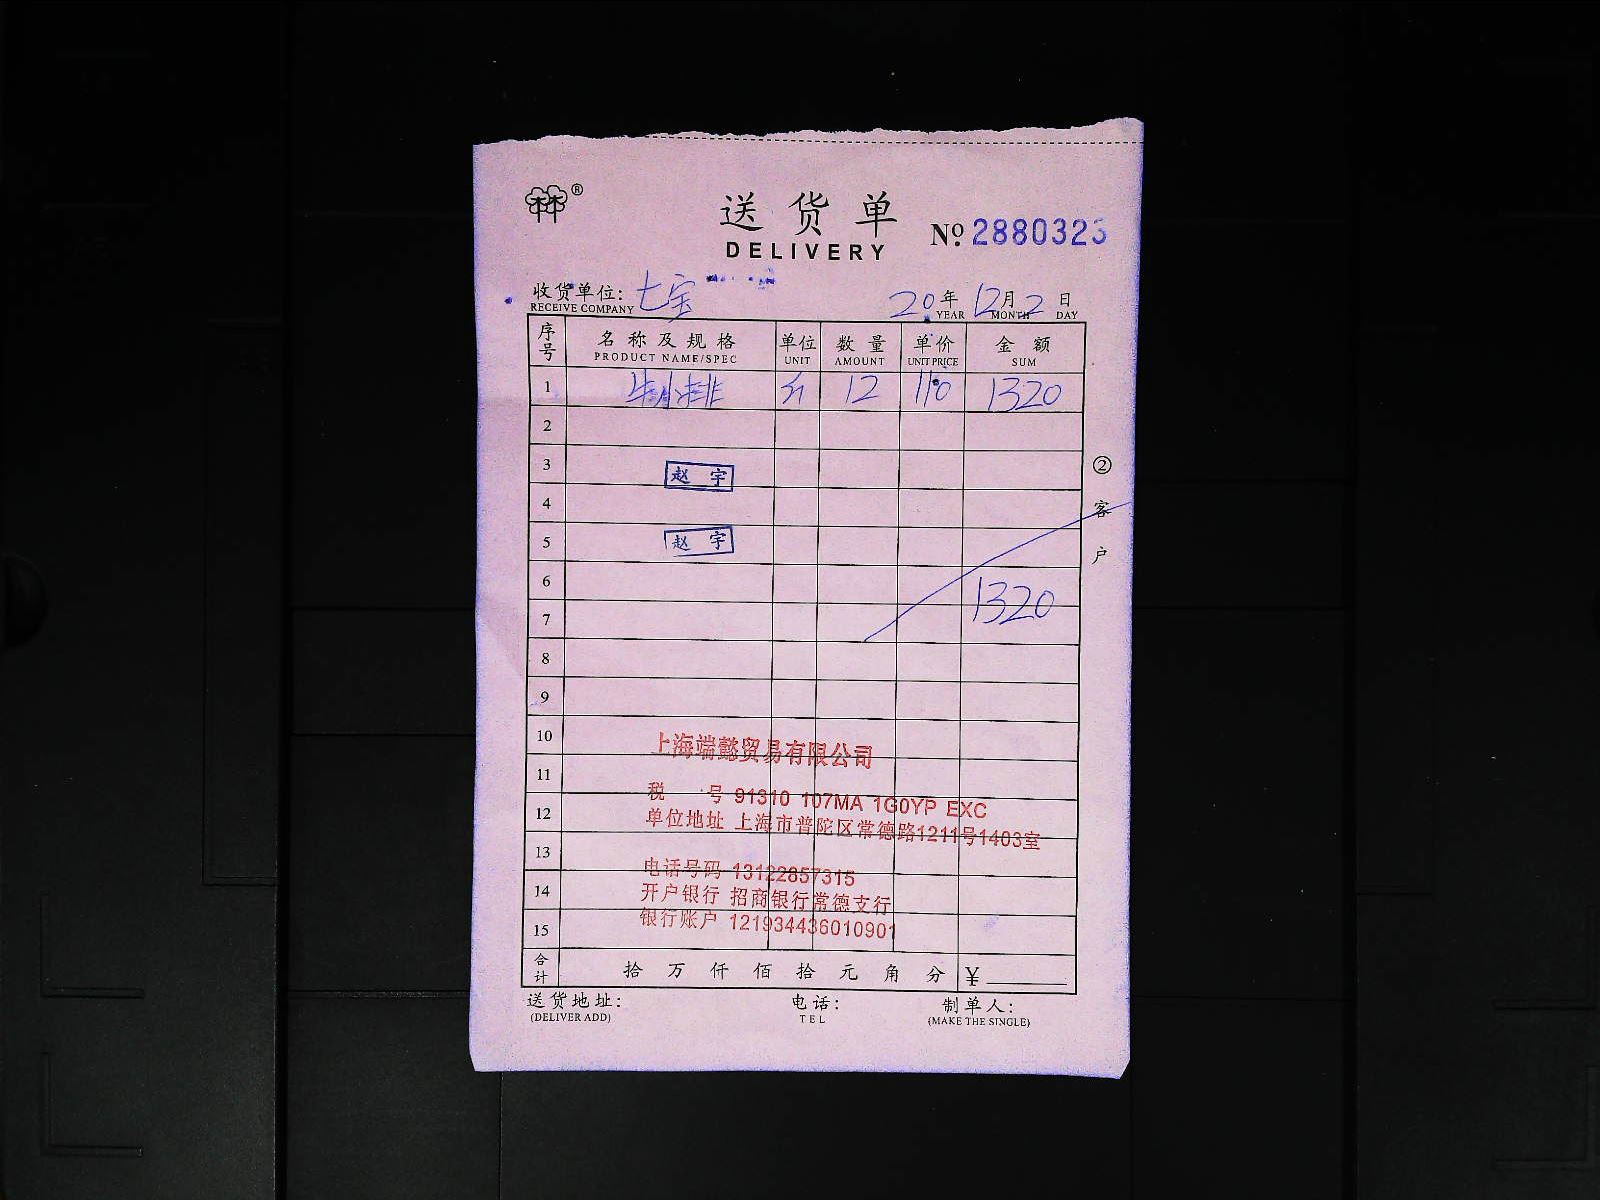 林®
送货单
DELIVERY
№ 2880323
收货单位: 七宝 20年 12月 2日
RECEIVE COMPANY YEAR MONTH DAY
序号 名称及规格 单位 数量 单价 金额
PRODUCT NAME/SPEC UNIT AMOUNT UNIT PRICE SUM
1 牛小排 12 110 1320
2
3 赵宇
4
5 赵宇
6
7 1320
8
9
10 上海端懿贸易有限公司
11
税 号 91310 107MA 1G0YP EXC
12 单位地址 上海市普陀区常德路1211号1403室
13
电话号码 13122857315
14 开户银行 招商银行常德支行
15 银行账户 121934436010901
合计 拾万仟佰拾元角分 ¥
送货地址: 电话: 制单人:
(DELIVER ADD) TEL (MAKE THE SINGLE)
②客户